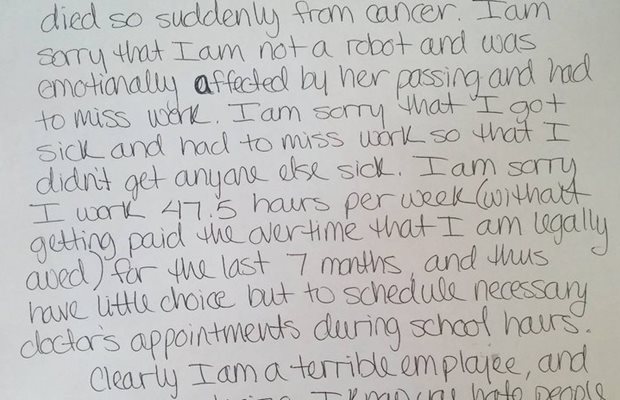 died so suddenly from cancer. I am
sorry that I am not a robot and was
emotionally affected by her passing and had
to miss work. I am sorry that I got
sick and had to miss work so that I
didn't get anyone else sick. I am sorry
I work 47.5 hours per week (without
getting paid the overtime that I am legally
owed) for the last 7 months, and thus
have little choice but to schedule necessary
doctor's appointments during school hours.
Clearly I am a terrible employee, and
hate people